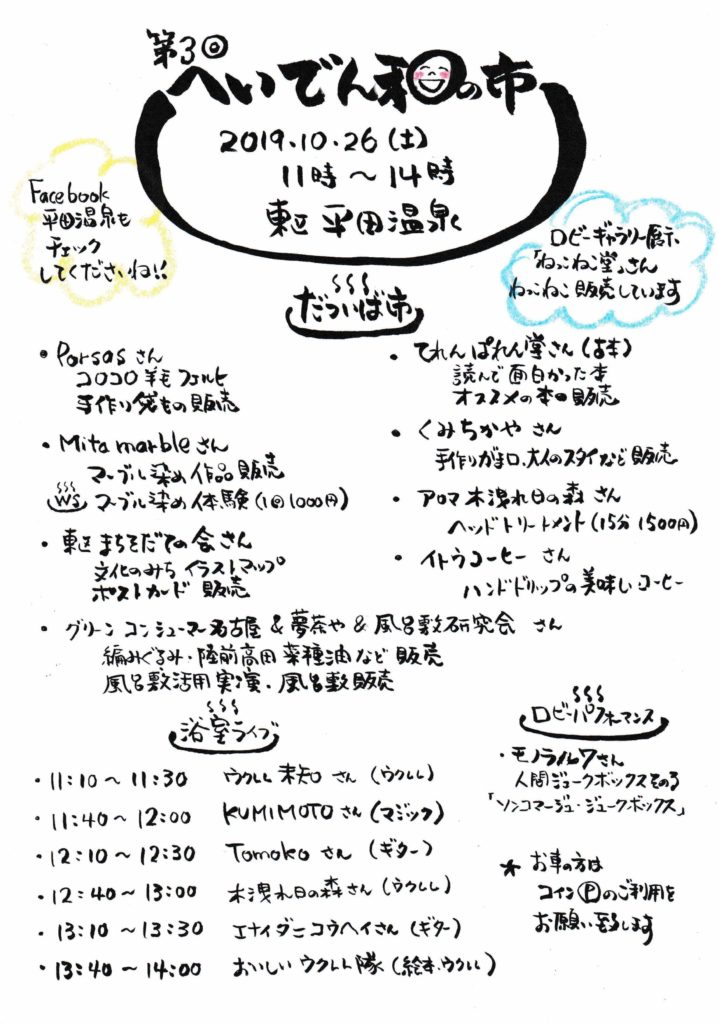 第3回
へいでん和の市
2019.10.26(土)
11時〜14時
東区 平田温泉
Facebook
平田温泉も
チェック
してくださいね!!
ロビーギャラリー展示
「ねこねこ堂」さん
ねこねこ販売しています
だついば市
• Porsas さん
コロコロ羊毛フェルト
手作り袋もの販売
• Mita marble さん
マーブル染め作品販売
WS マーブル染め体験(1回1000円)
• 東区まちそだての会さん
文化のみち イラストマップ
ポストカード 販売
• てれんぱれん堂さん(古本)
読んで面白かった本
オススメの本の販売
• くみちかや さん
手作りがま口、大人のスタイなど販売
• アロマ木洩れ日の森 さん
ヘッドトリートメント(15分1500円)
• イトウコーヒー さん
ハンドドリップの美味しいコーヒー
• グリーンコンシューマー名古屋 & 夢茶や & 風呂敷研究会 さん
編みぐるみ・陸前高田菜種油など販売
風呂敷活用実演、風呂敷販売
浴室ライブ
• 11:10〜11:30 ウクレレ未知 さん (ウクレレ)
• 11:40〜12:00 KUMIMOTO さん (マジック)
• 12:10〜12:30 Tomoko さん (ギター)
• 12:40〜13:00 木洩れ日の森さん (ウクレレ)
• 13:10〜13:30 エナイダニコウヘイさん (ギター)
• 13:40〜14:00 おいしいウクレレ隊 (絵本、ウクレレ)
ロビーパフォーマンス
• モノラル7さん
人間ジュークボックスその名
「ソンコマージュ・ジュークボックス」
* お車の方は
コインⓅのご利用を
お願い致します